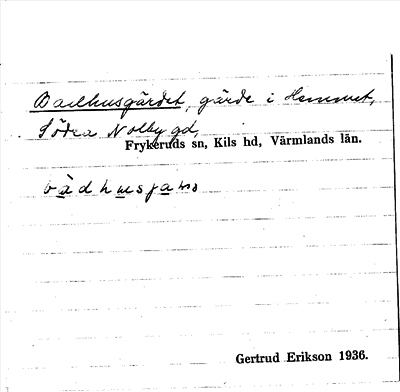 Badhusgärdet, gärde i Hemmet,
Södra Nolbygd,
Frykeruds sn, Kils hd, Värmlands län.
Gertrud Erikson 1936.